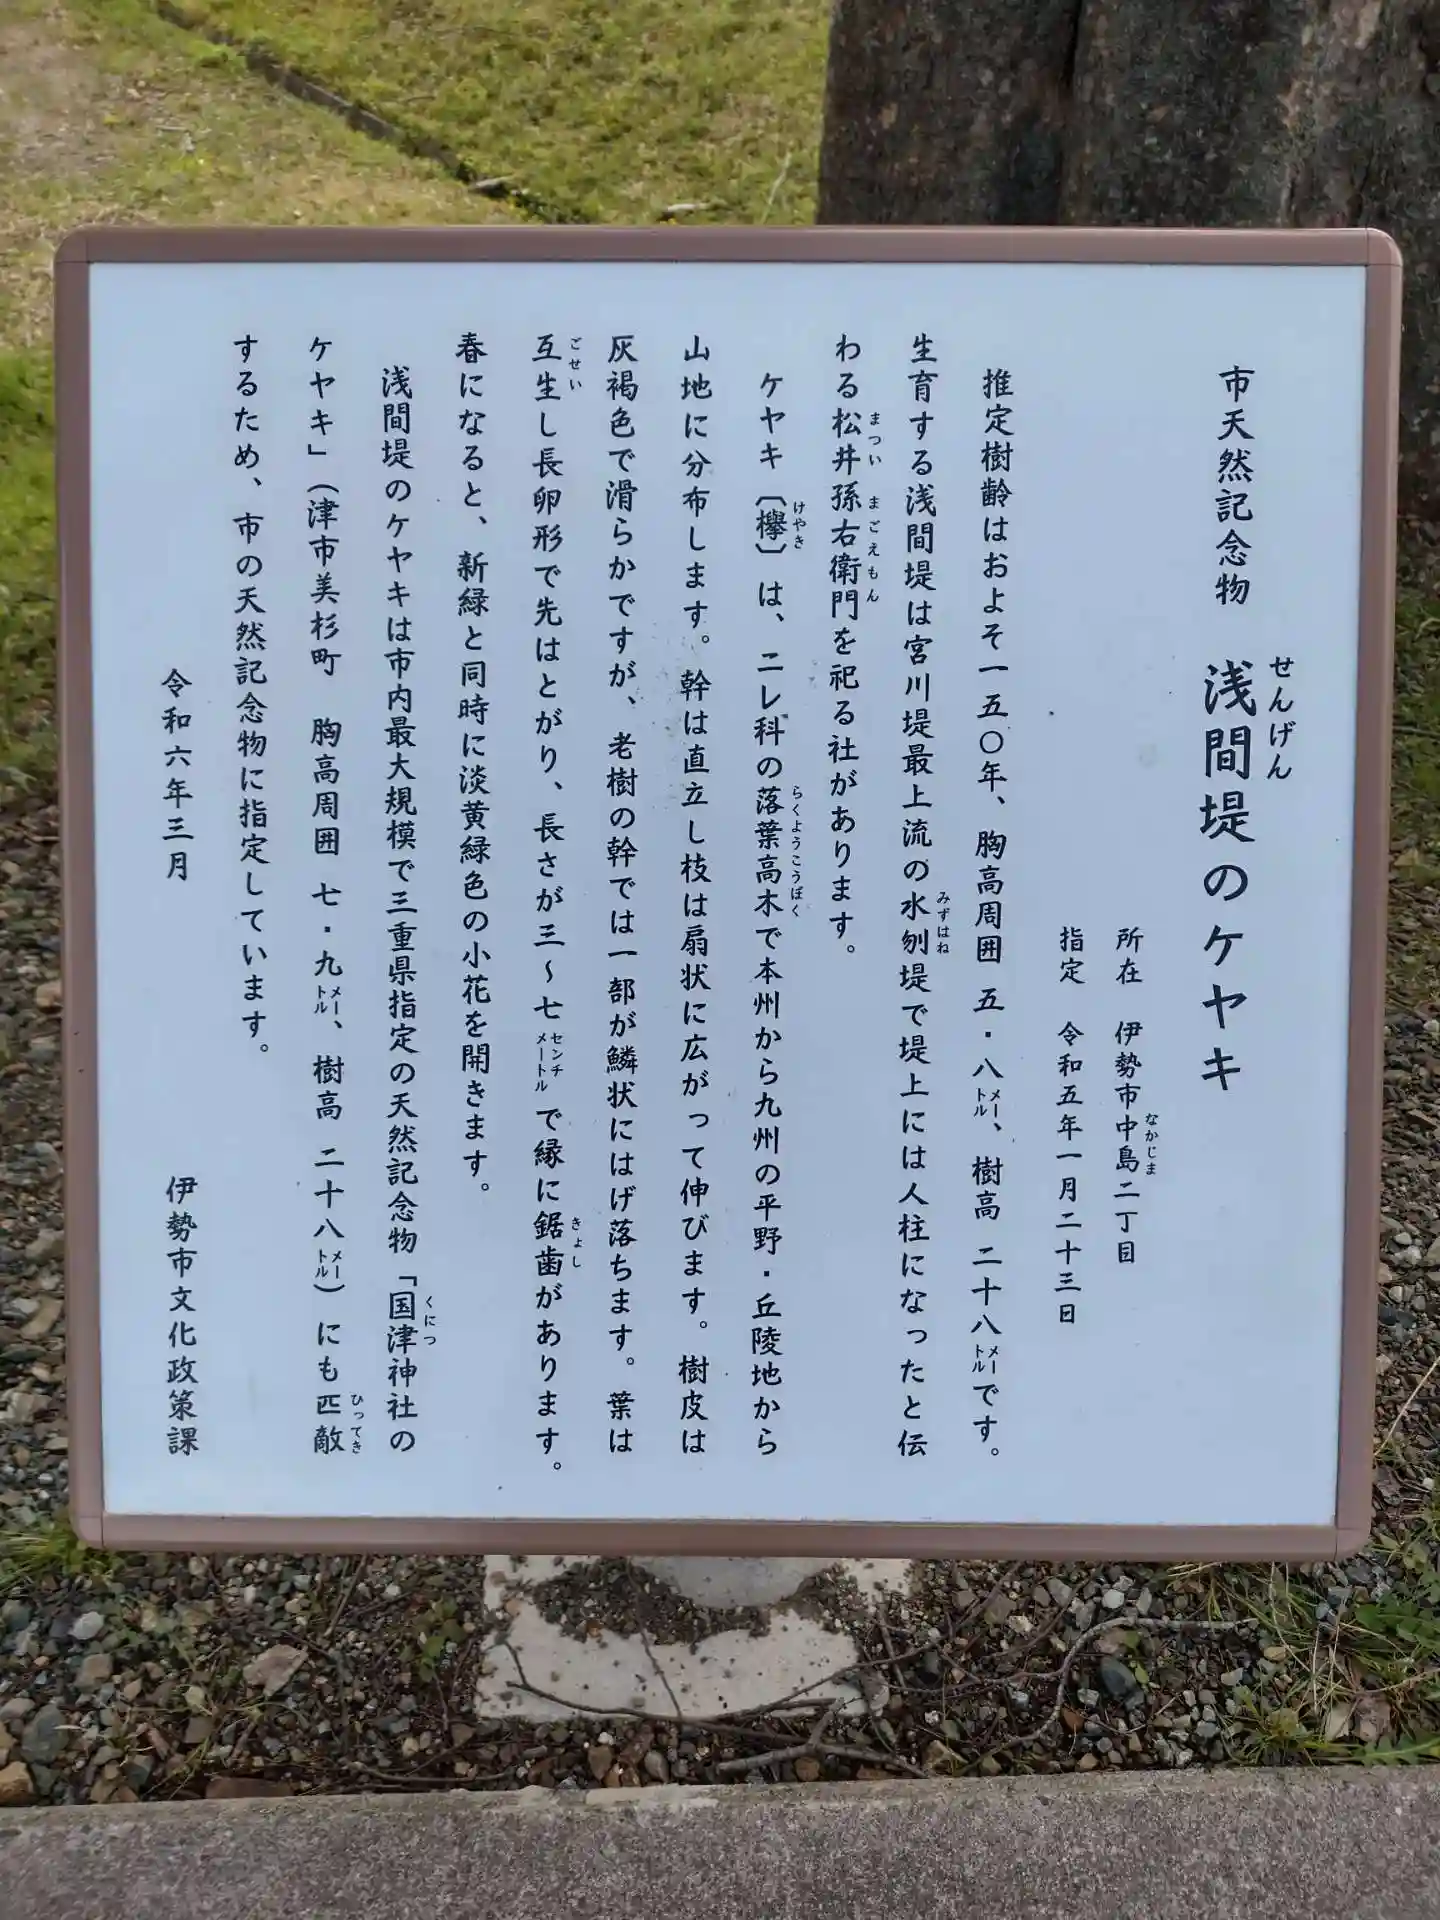 市天然記念物　浅間堤のケヤキ
せんげん
所在　伊勢市中島二丁目
なかじま
指定　令和五年一月二十三日
推定樹齢はおよそ一五〇年、胸高周囲 五・八メートル、樹高 二十八メートルです。
生育する浅間堤は宮川堤最上流の水刎堤で堤上には人柱になったと伝
みずはね
わる松井孫右衛門を祀る社があります。
まつい まごえもん
ケヤキ〔欅〕は、ニレ科の落葉高木で本州から九州の平野・丘陵地から
けやき らくようこうぼく
山地に分布します。幹は直立し枝は扇状に広がって伸びます。樹皮は
灰褐色で滑らかですが、老樹の幹では一部が鱗状にはげ落ちます。葉は
互生し長卵形で先はとがり、長さが三〜七センチメートルで縁に鋸歯があります。
ごせい きょし
春になると、新緑と同時に淡黄緑色の小花を開きます。
浅間堤のケヤキは市内最大規模で三重県指定の天然記念物「国津神社の
くにつ
ケヤキ」（津市美杉町　胸高周囲 七・九メートル、樹高 二十八メートル）にも匹敵
ひってき
するため、市の天然記念物に指定しています。
令和六年三月　伊勢市文化政策課